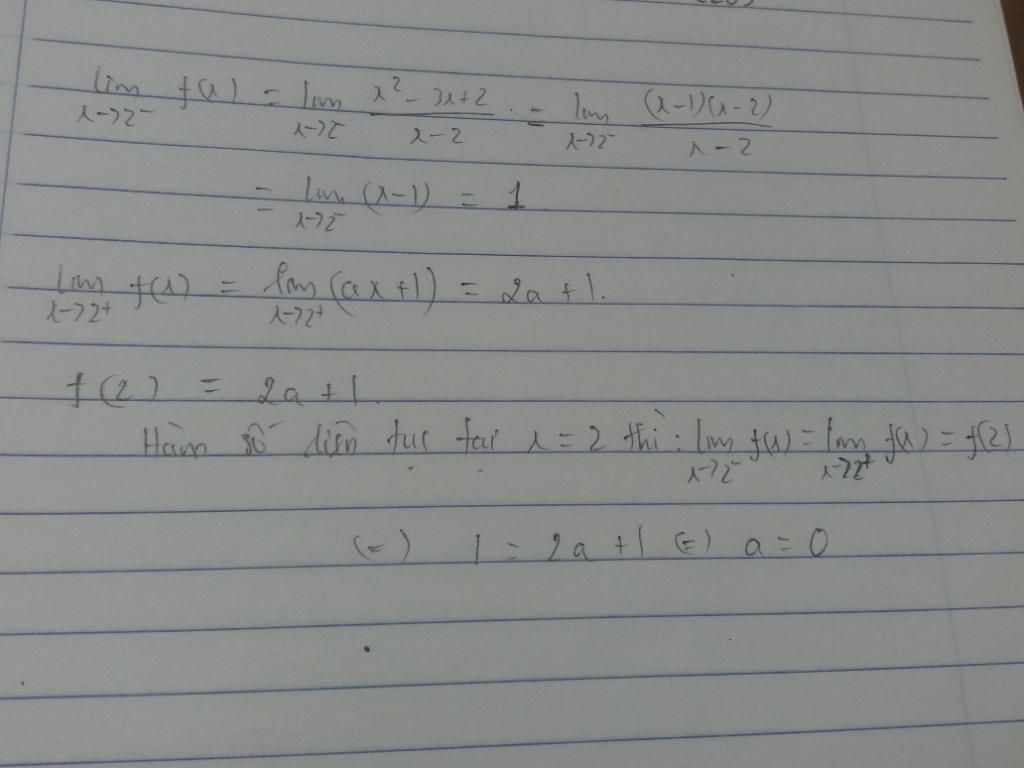 lim x→2⁻ f(x) = lim x→2⁻ (x² - 3x + 2)/(x - 2) = lim x→2⁻ ((x-1)(x-2))/(x - 2)
= lim x→2⁻ (x-1) = 1
lim x→2⁺ f(x) = lim x→2⁺ (ax + 1) = 2a + 1.
f(2) = 2a + 1.
Hàm số liên tục tại x = 2 thì: lim x→2⁻ f(x) = lim x→2⁺ f(x) = f(2)
(=) 1 = 2a + 1 (=) a = 0